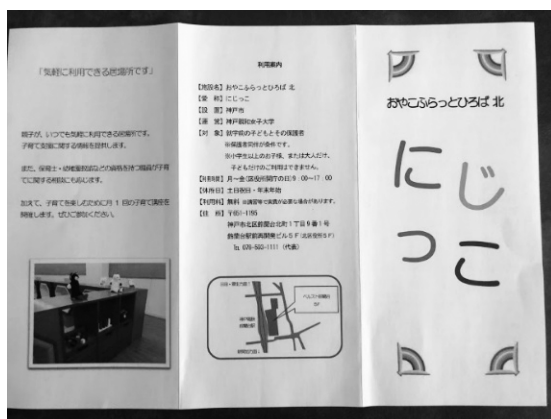 「気軽に利用できる居場所です」
親子が、いつでも気軽に利用できる居場所です。
子育て支援に関する情報を提供します。
また、保育士・幼稚園教諭などの資格を持つ職員が子育
てに関する相談にも応じます。
加えて、子育てを楽しむために月 1 回の子育て講座を
開催します。ぜひご参加ください。
利用案内
【施設名】おやこふらっとひろば 北
【愛 称】にじっこ
【設 置】神戸市
【運 営】神戸親和女子大学
【対 象】就学前の子どもとその保護者
※保護者同伴が条件です。
※小学生以上のお子様、または大人だけ、
子どもだけのご利用はできません。
【利用時間】月~金(区役所開庁の日)9:00~17:00
【休館日】土日祝日・年末年始
【利用料】無料 ※講習等で実費が必要な場合があります。
【住 所】〒651-1195
神戸市北区鈴蘭台北町1丁目9番1号
鈴蘭台駅前再開発ビル5F(北区役所5F)
℡ 078-593-1111(代表)
5F
おやこふらっとひろば 北
にじ
っこ